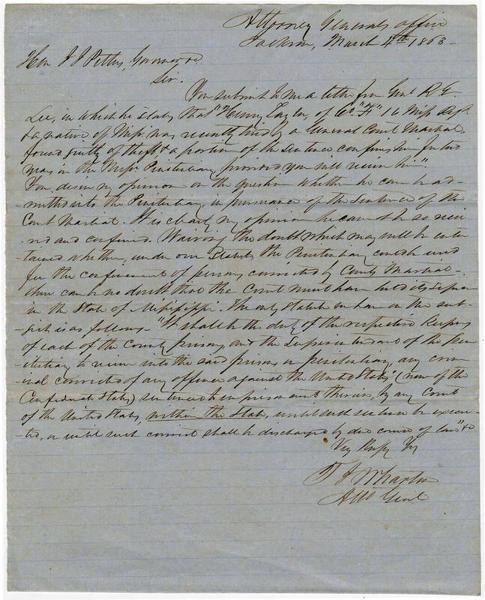 Attorney Generals office
Jackson, March 4th 1863
Hon J J Pettus, Governor &c
Sir.
You submit to me a letter from Genl R E
Lee, in which he states that "Henry Taylor of Co "F" 16 Miss Regt
& a native of Miss was recently tried by a General Court Martial
found guilty of theft & a portion of the sentence confinement for two
mos in the Miss Penitentiary, provided you will receive him"
You desire my opinion on the question whether he can be ad-
mitted into the Penitentiary in pursuance of the sentence of the
Court Martial. It is clearly my opinion he cannot be so recei
ved and confined. Waiving the doubt which may well be enter
tained whether, under our Statutes the Penitentiary could be used
for the confinement of persons convicted by Courts Martial
there can be no doubt that the Court must have had its session
in the State of Mississippi. The only statute we have on the sub-
ject is as follows "It shall be the duty of the respective keepers
of each of the County prisons and the Superintendent of the Pen
itentiary to receive into the said prisons or penitentiary any crim
inal convicted of any offence against the United States" (now of the
Confederate States) sentenced to imprisonment therein, by any Court
of the United States, within this State, until such sentence be execu-
ted, or until such convict shall be discharged by due course of law" &c
Very Respy Yrs
T J Wharton
Atto Genl